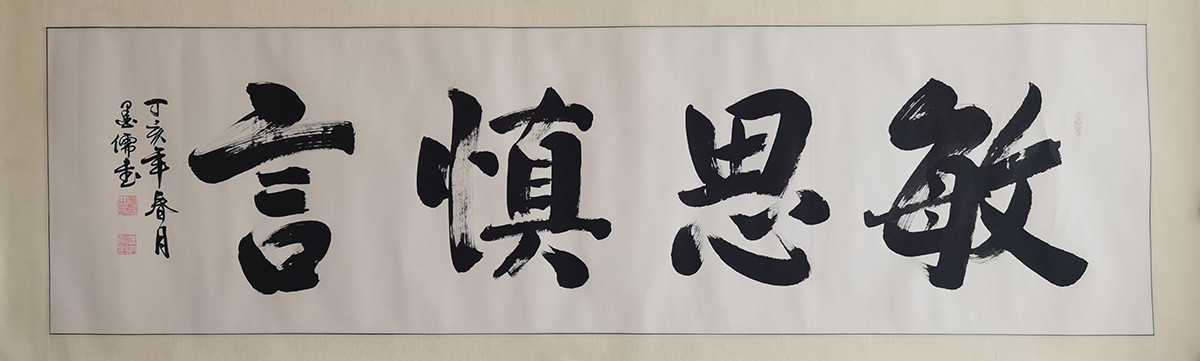 敏思慎言
丁亥年春月
墨儒书